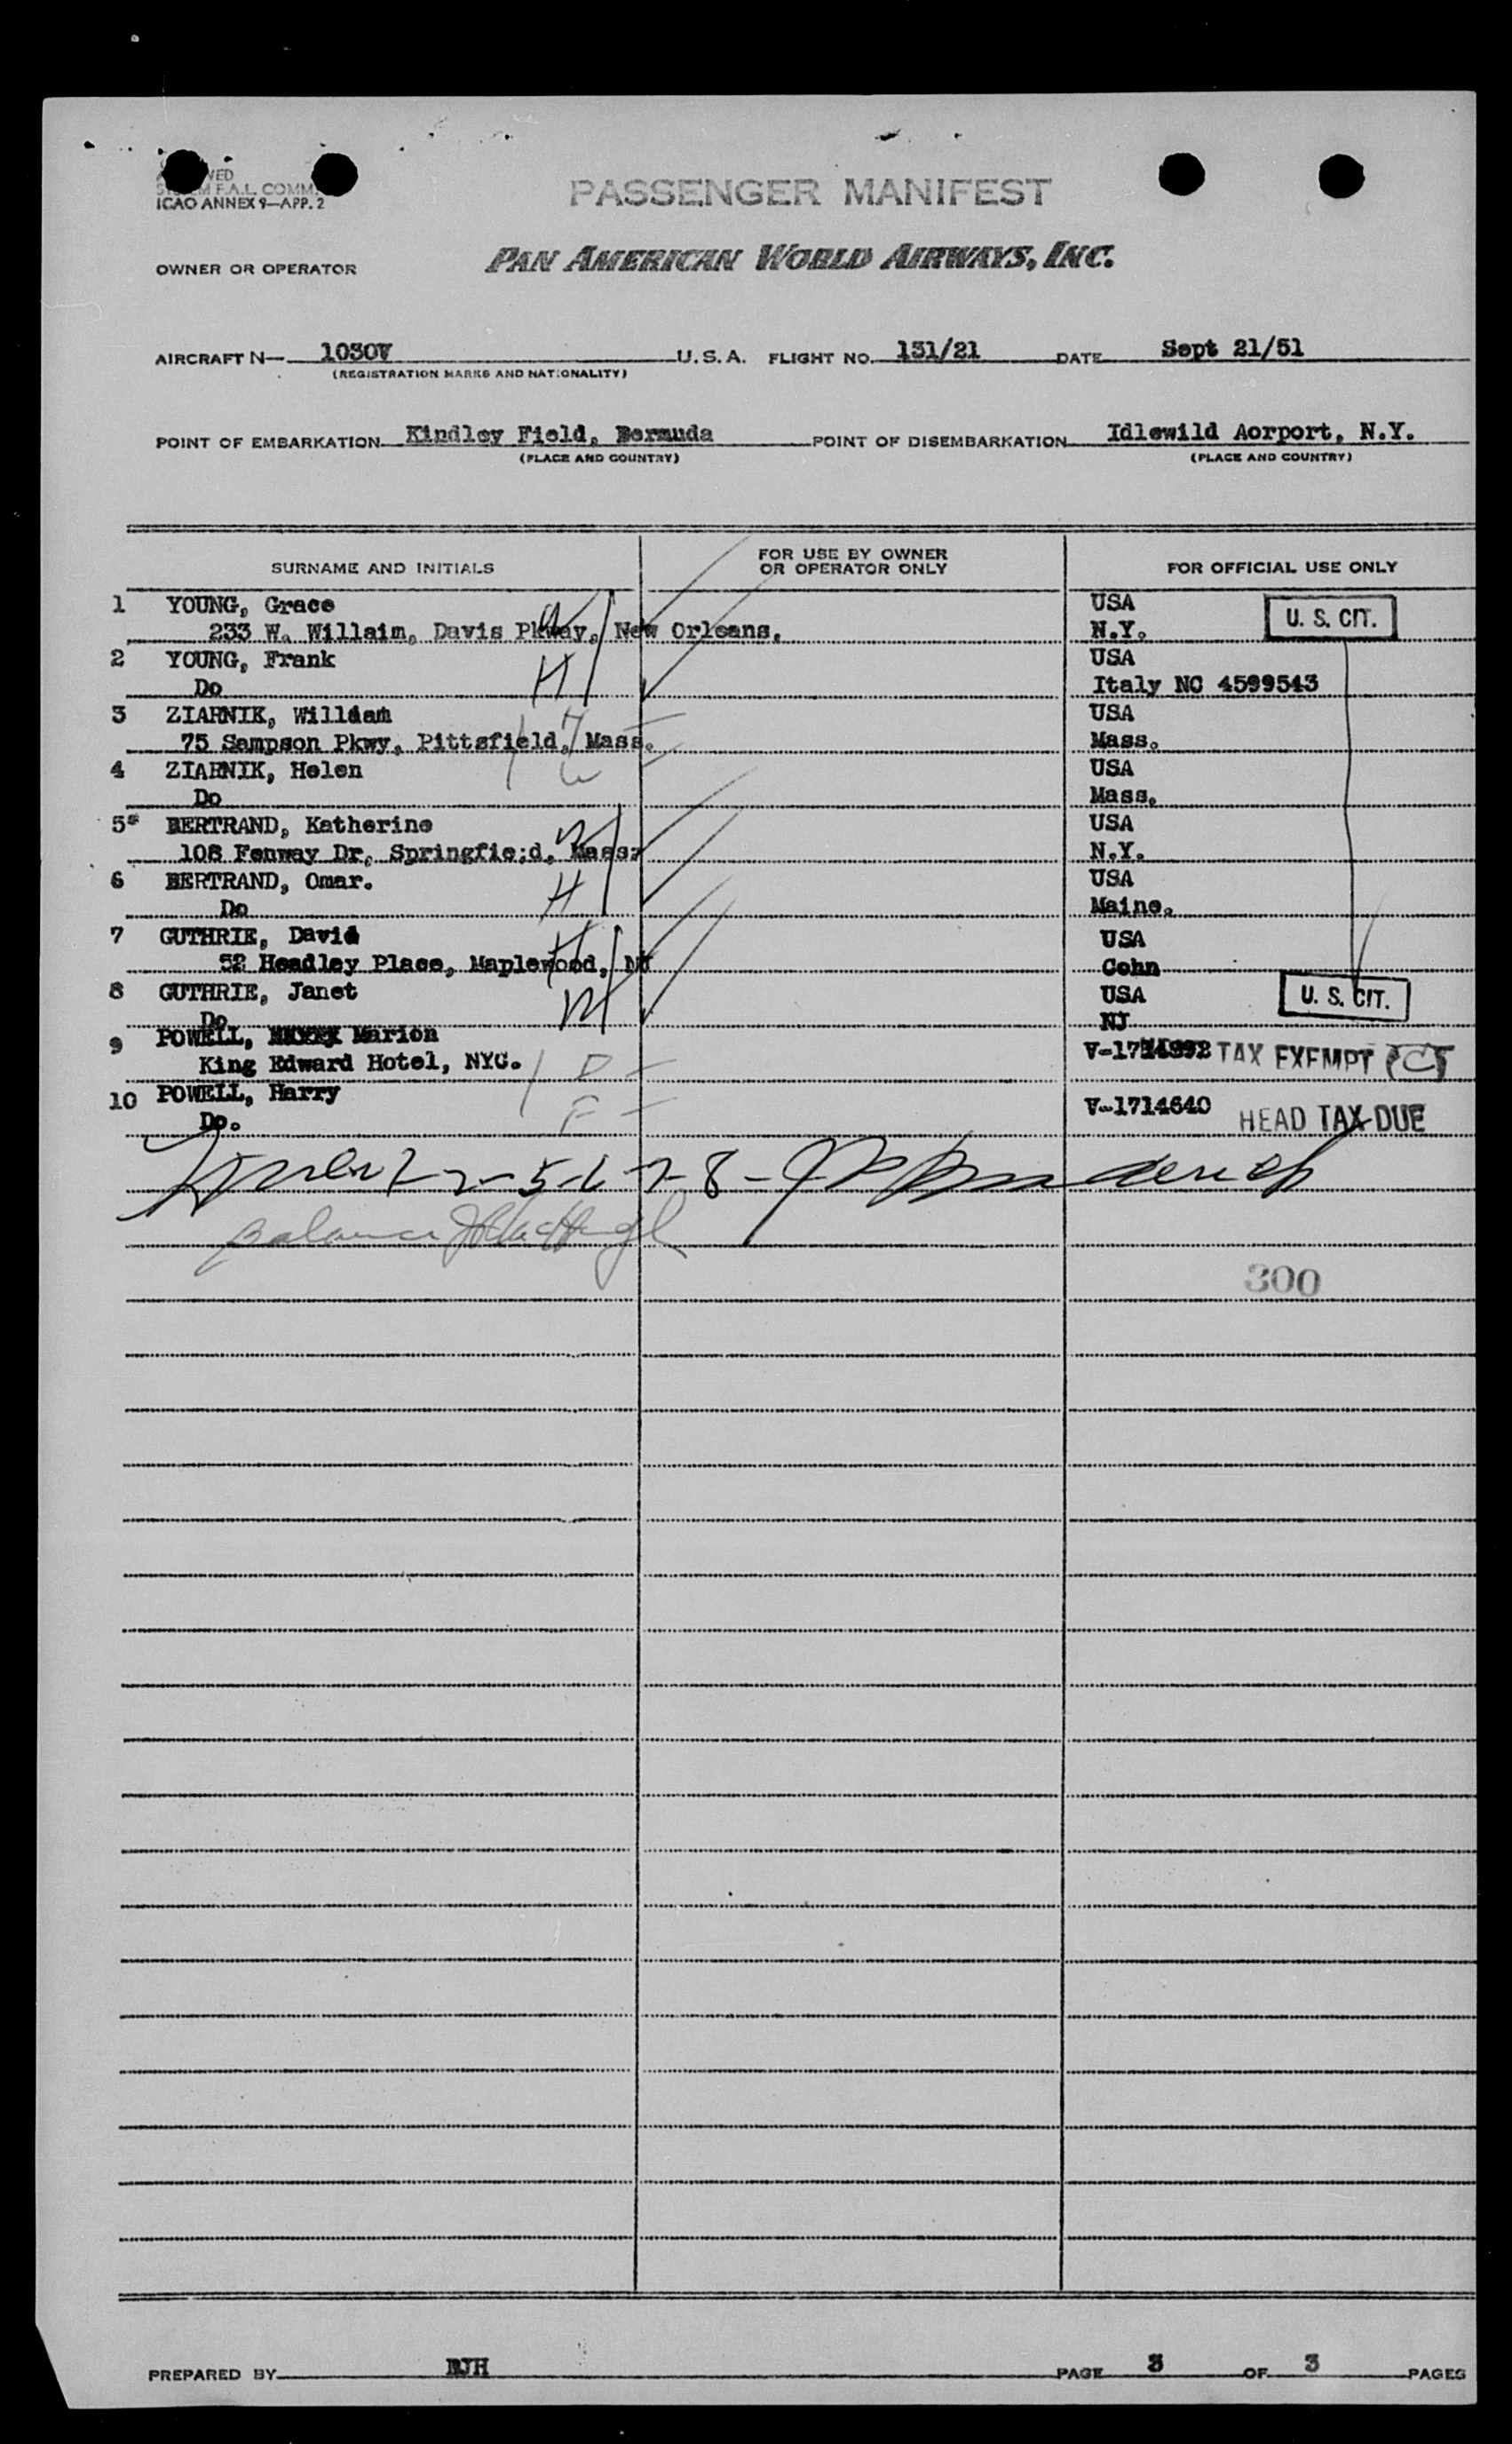 ICAO ANNEX 9—APP. 2
PASSENGER MANIFEST
OWNER OR OPERATOR PAN AMERICAN WORLD AIRWAYS, INC.
AIRCRAFT N— 1030V U.S.A. FLIGHT NO. 131/21 DATE Sept 21/51
(REGISTRATION MARKS AND NATIONALITY)
POINT OF EMBARKATION Kindley Field, Bermuda POINT OF DISEMBARKATION Idlewild Aorport, N.Y.
(PLACE AND COUNTRY) (PLACE AND COUNTRY)
SURNAME AND INITIALS FOR USE BY OWNER OR OPERATOR ONLY FOR OFFICIAL USE ONLY
1 YOUNG, Grace USA
233 W. Willaim, Davis Pkway, New Orleans, N.Y. U. S. CIT.
2 YOUNG, Frank USA
Do H Italy NC 4599543
3 ZIARNIK, William USA
75 Sampson Pkwy, Pittsfield, Mass. Mass.
4 ZIARNIK, Helen USA
Do Mass.
5 BERTRAND, Katherine USA
108 Fenway Dr, Springfie;d, Mass. N.Y.
6 BERTRAND, Omar. USA
Do H Maine.
7 GUTHRIE, David USA
52 Headley Place, Maplewood, NJ Conn
8 GUTHRIE, Janet USA U. S. CIT.
Do NJ
9 POWELL, Marion TAX EXEMPT
King Edward Hotel, NYC.
10 POWELL, Harry V-1714640 HEAD TAX DUE
Do.
1-2-5-6 7-8-
balance
300
PREPARED BY RJH PAGE 3 OF 3 PAGES